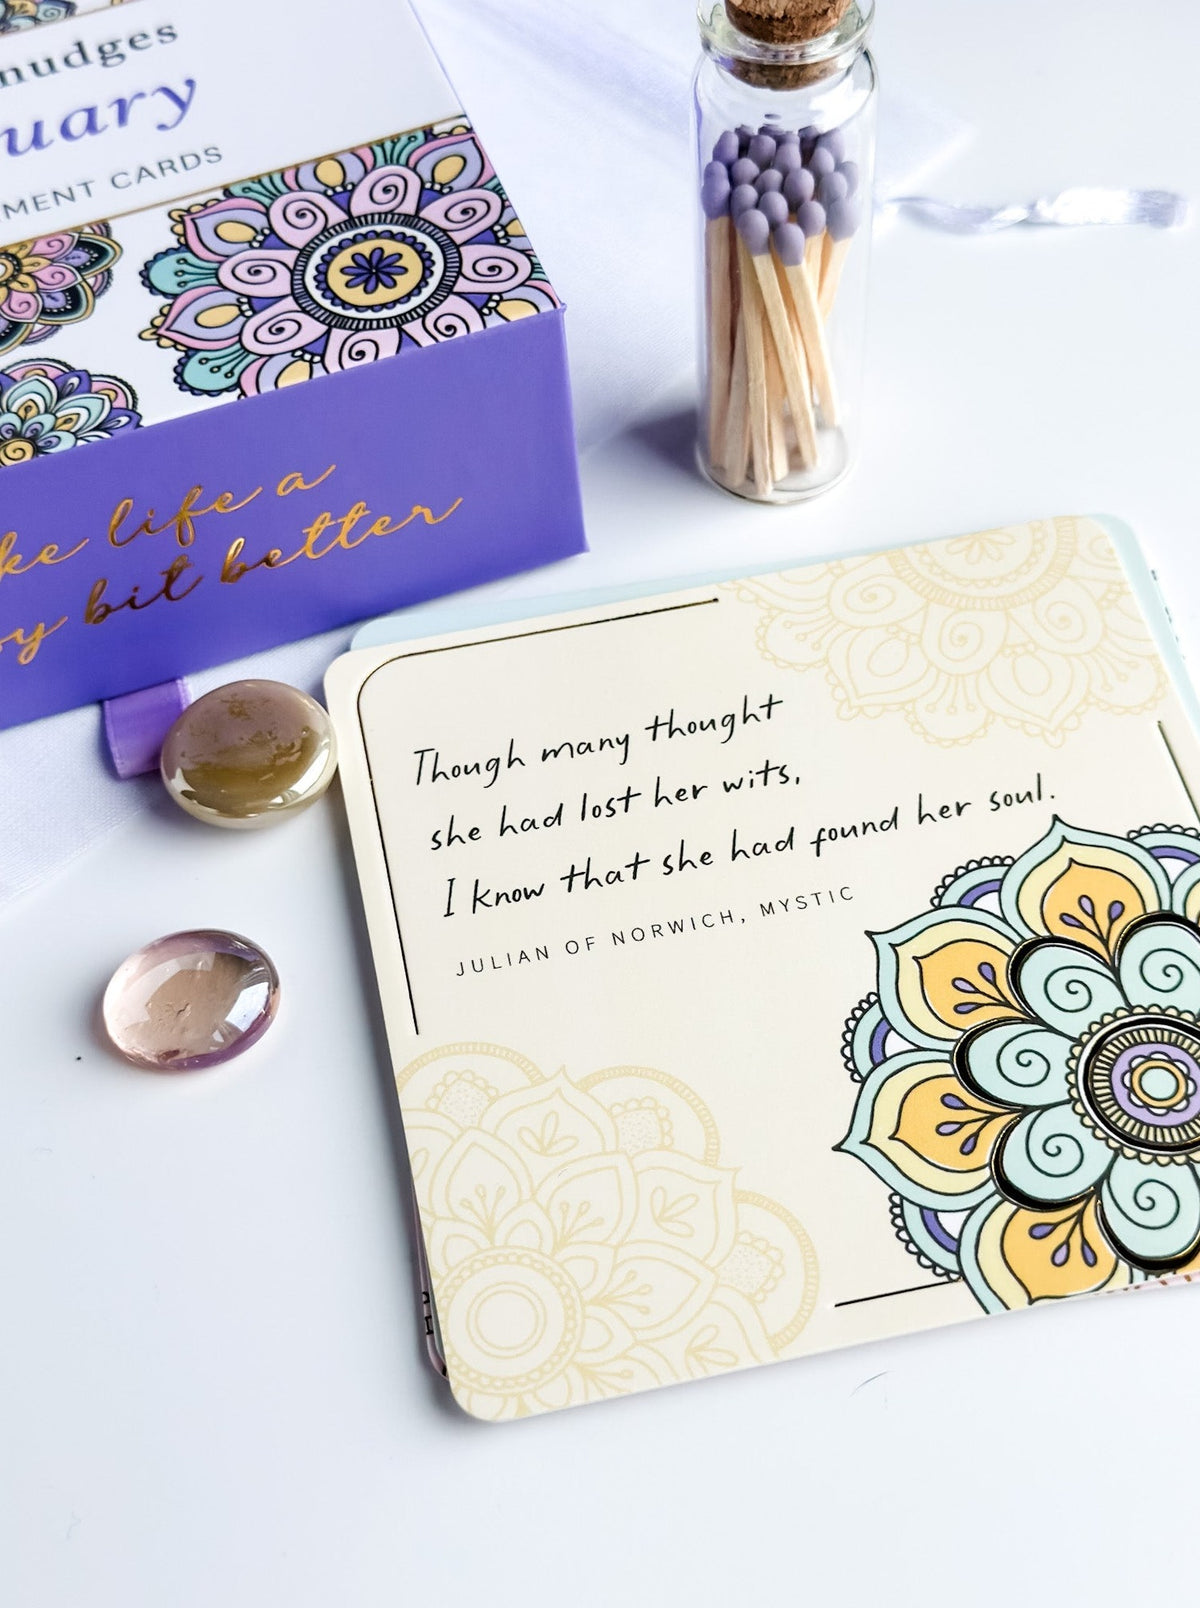 nudges
uary
MENT CARDS
ke life a
bit better
Though many thought
she had lost her wits,
I know that she had found her soul.
JULIAN OF NORWICH, MYSTIC